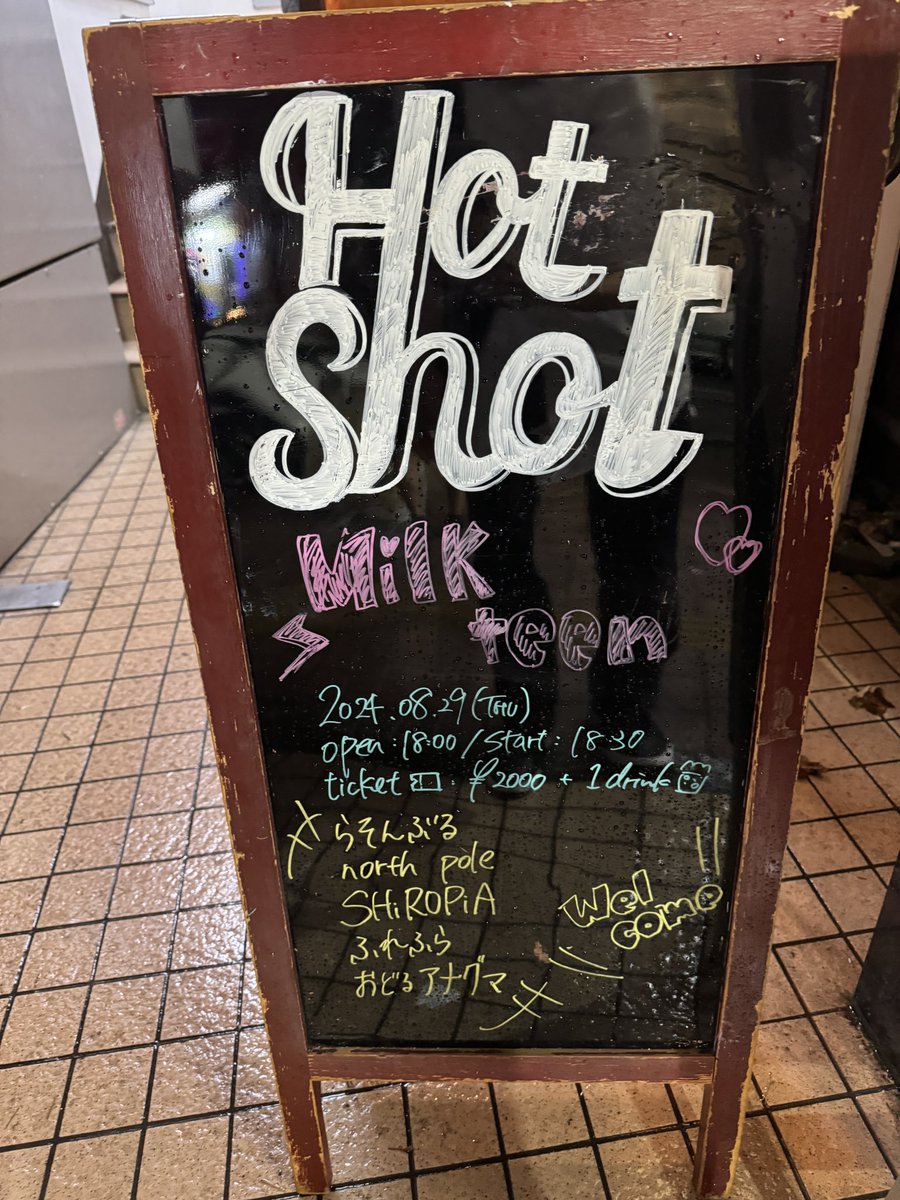 Hot
Shot
Milk
teen
2024.08.29(THU)
open:18:00/Start:18:30
ticket : ¥2000 + 1drink
らそんぶる
north pole
SHiROPiA
ふれふら
おどるアナグマ
Wel
come